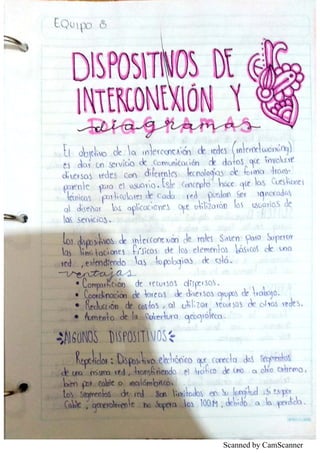 EQUIPO 8
DISPOSITIVOS DE
INTERCONEXIÓN Y
DIAGRAMAS
El objetivo de la interconexión de redes (internetworking)
es dar un servicio de comunicación de datos que involucre
diversas redes con diferentes tecnologías de forma trans-
parente para el usuario. Este concepto hace que las cuestiones
técnicas particulares de cada red puedan ser ignoradas
al diseñar las aplicaciones que utilizarán los usuarios de
los servicios.
Los dispositivos de interconexión de redes sirven para superar
las limitaciones físicas de los elementos básicos de una
red, extendiendo las topologías de esta.
ventajas
• Compartición de recursos dispersos.
• Coordinación de tareas de diversos grupos de trabajo.
• Reducción de costos, al utilizar recursos de otras redes.
• Aumento de la cobertura geográfica.
ALGUNOS DISPOSITIVOS
Repetidor: Dispositivo electrónico que conecta dos segmentos
de una misma red, transfiriendo el tráfico de uno a otro extremo,
bien por cable o inalámbrico.
Los segmentos de red son limitados en su longitud si es por
cable, generalmente no supera los 100 M, debido a la perdida
Scanned by CamScanner